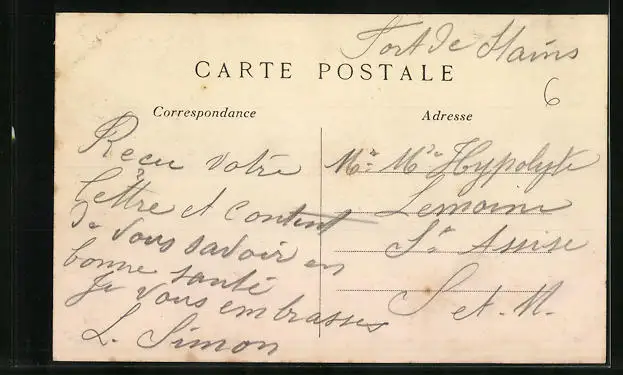 Fort de Stains
CARTE POSTALE
6
Correspondance
Reçu votre
lettre et content
de vous savoir en
bonne santé
Je vous embrasses
L. Simon
Adresse
Mr Me Hypolyte
Lemoine
Ste Assise
S et. M.